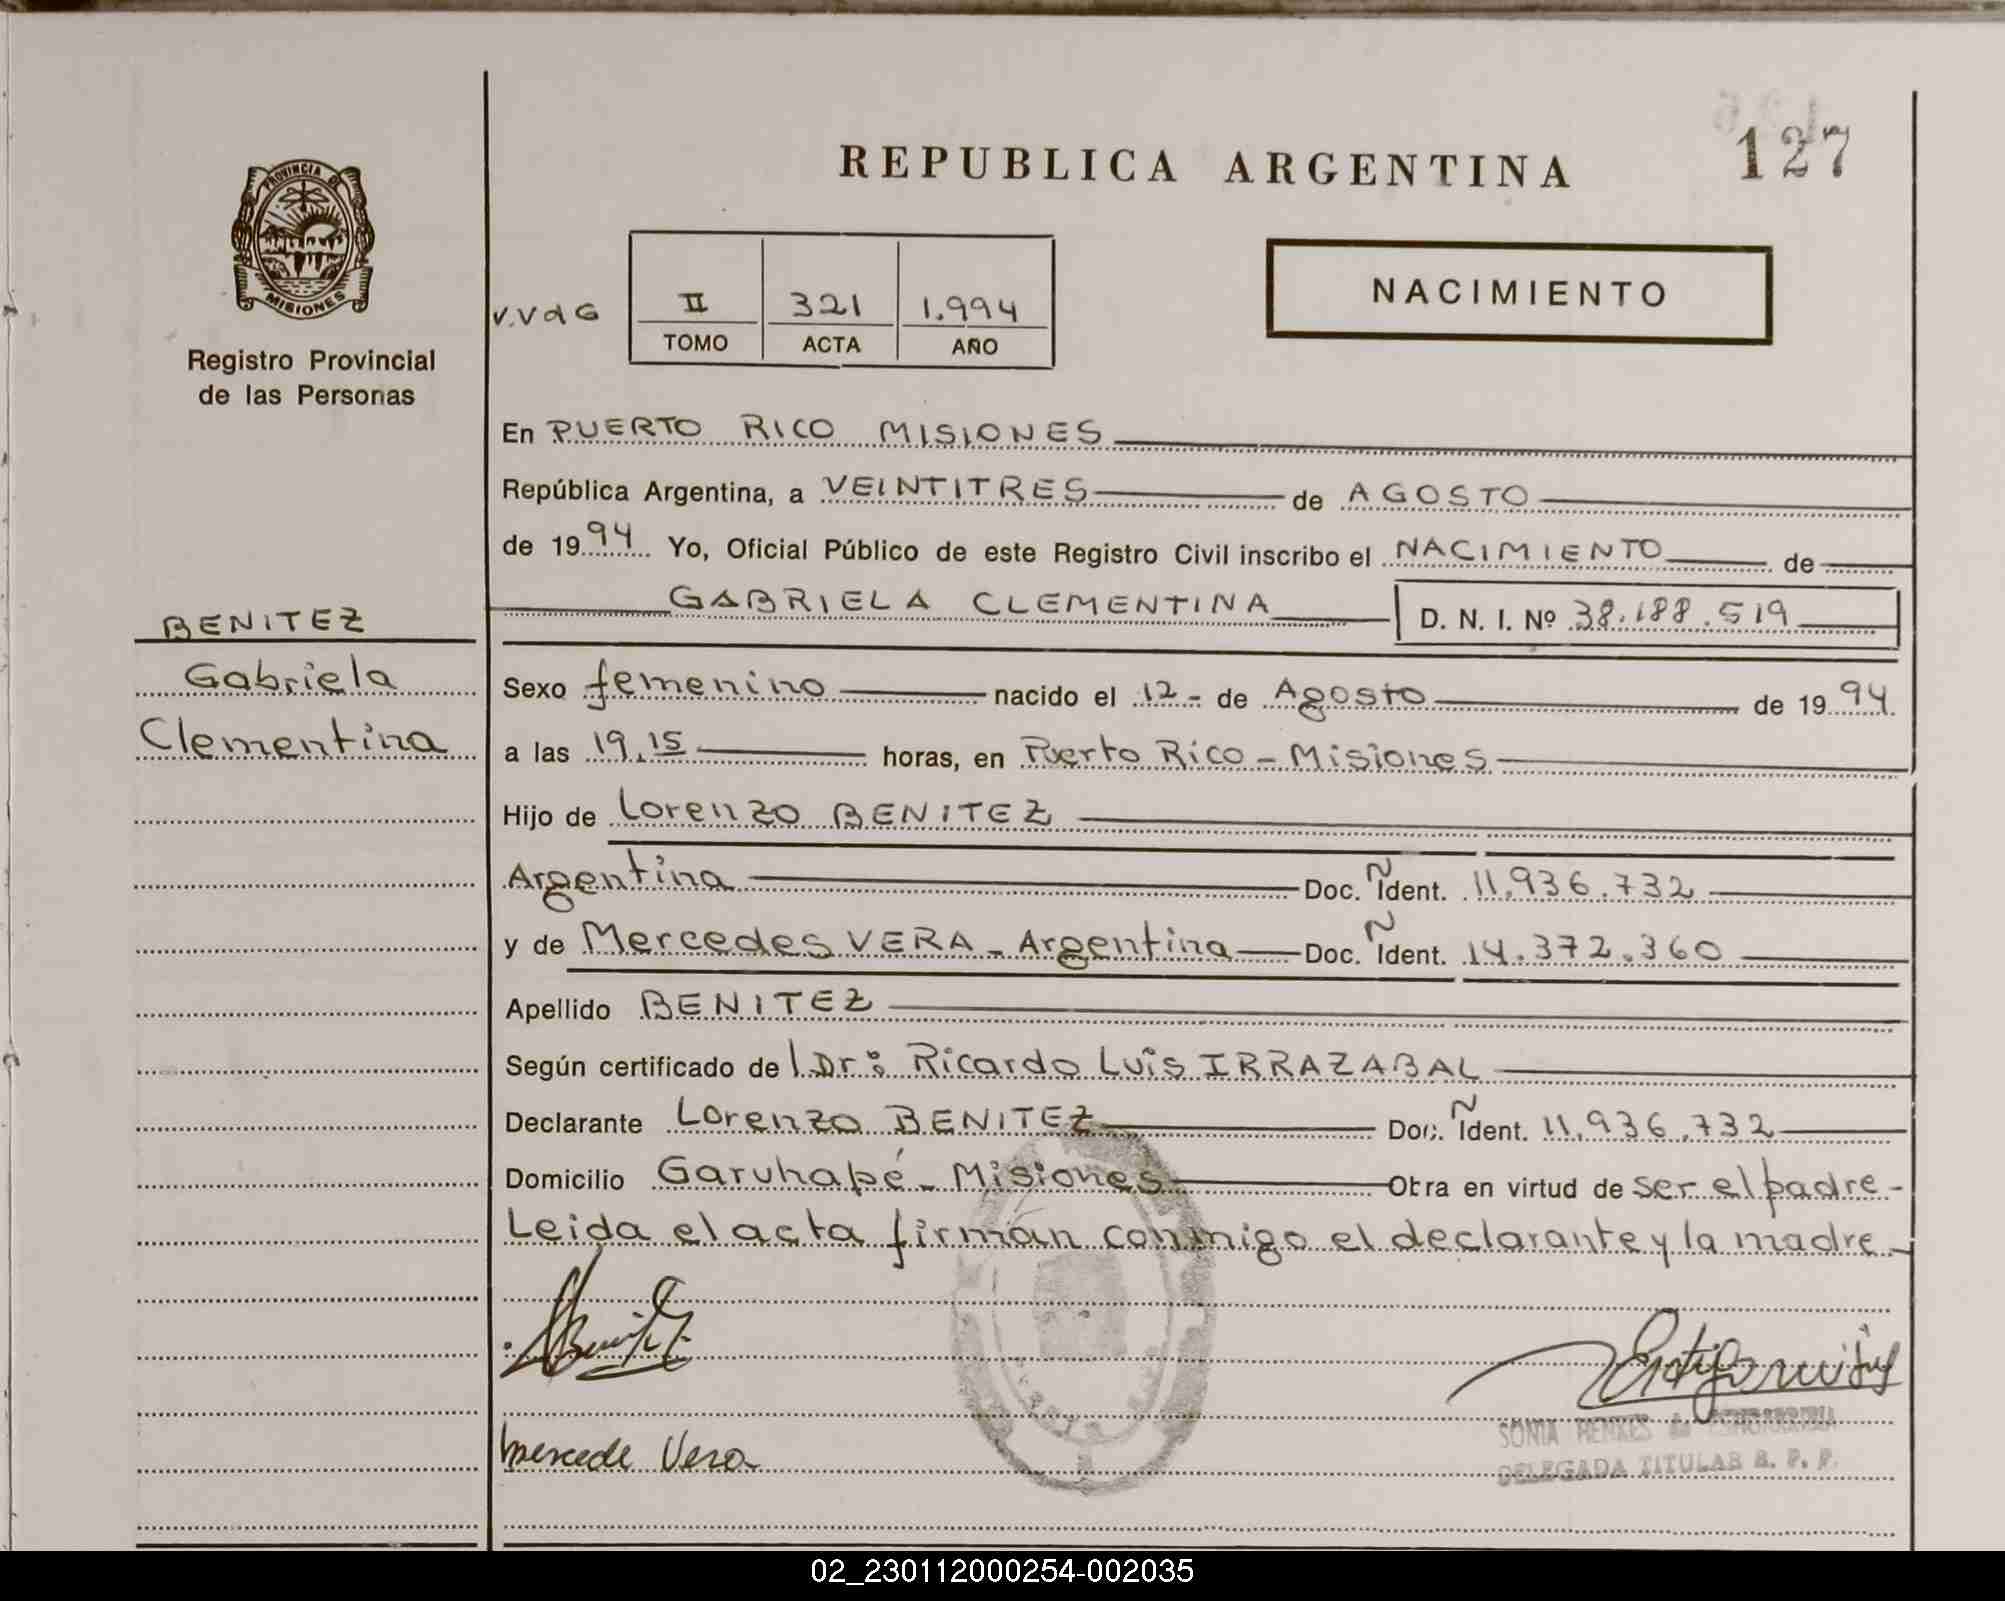 127
REPUBLICA ARGENTINA
PROVINCIA DE
MISIONES
NACIMIENTO
V.V d G
II 321 1.994
TOMO ACTA AÑO
Registro Provincial
de las Personas
En PUERTO RICO MISIONES
República Argentina, a VEINTITRES de AGOSTO
de 1994 Yo, Oficial Público de este Registro Civil inscribo el NACIMIENTO de
GABRIELA CLEMENTINA D. N. I. Nº 38.188.519
BENITEZ
Gabriela
Clementina
Sexo femenino nacido el 12- de Agosto de 1994
a las 19,15 horas, en Puerto Rico - Misiones
Hijo de Lorenzo BENITEZ
Argentina Doc. Ñ Ident. 11.936.732
y de Mercedes VERA - Argentina Doc. Ñ Ident. 14.372.360
Apellido BENITEZ
Según certificado de l Dr: Ricardo Luis IRRAZABAL
Declarante Lorenzo BENITEZ Doc. Ñ Ident. 11.936.732
Domicilio Garuhapé - Misiones Obra en virtud de ser el padre-
Leida el acta firman conmigo el declarante y la madre-
Mercede Vera
SONIA de
DELEGADA TITULAR R. P. P.
02_230112000254-002035